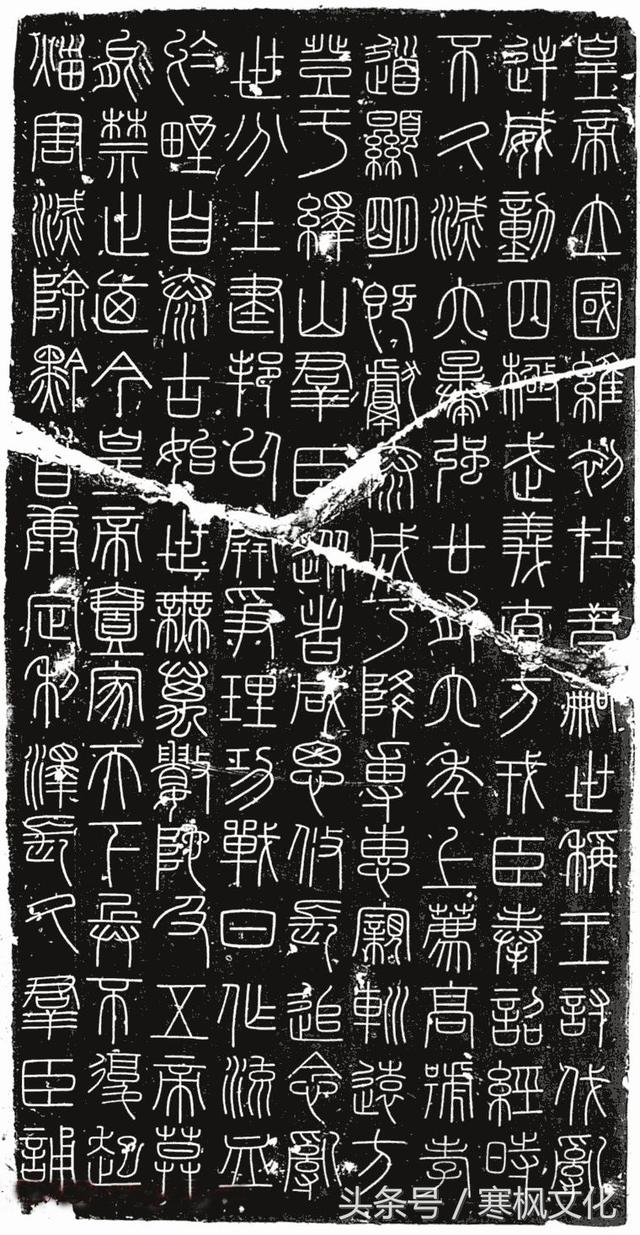 皇帝立國維初在昔嗣世稱王討伐亂
逆威動四極武義直方戎臣奉詔經時
不久滅六暴強廿有六年上薦高號孝
道顯明既獻泰成乃降專惠親巡遠方
登于繹山羣臣從者咸思攸長追念亂
世分土建邦以開爭理功戰日作流血
於野自泰古始世無萬數陀及五帝莫
能禁止迺今皇帝壹家天下兵不復起
災害滅除黔首康定利澤長久羣臣誦
头条号 / 寒枫文化